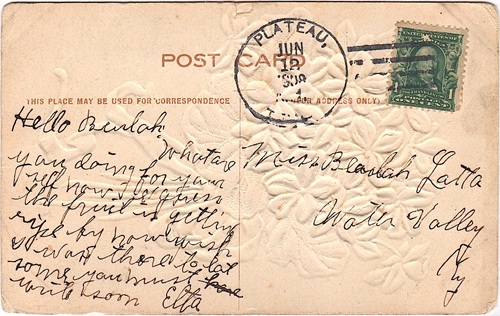 POST CARD
THIS PLACE MAY BE USED FOR CORRESPONDENCE
ADDRESS ONLY)
PLATEAU,
JUN
12
1909
1
Hello Beulah
What are
you doing for your
self now, I guess
the fruit is getting
ripe by now wish
I was there to eat
some, you must
write soon Etta
Miss Beulah Latta
Water Valley
Ky
1